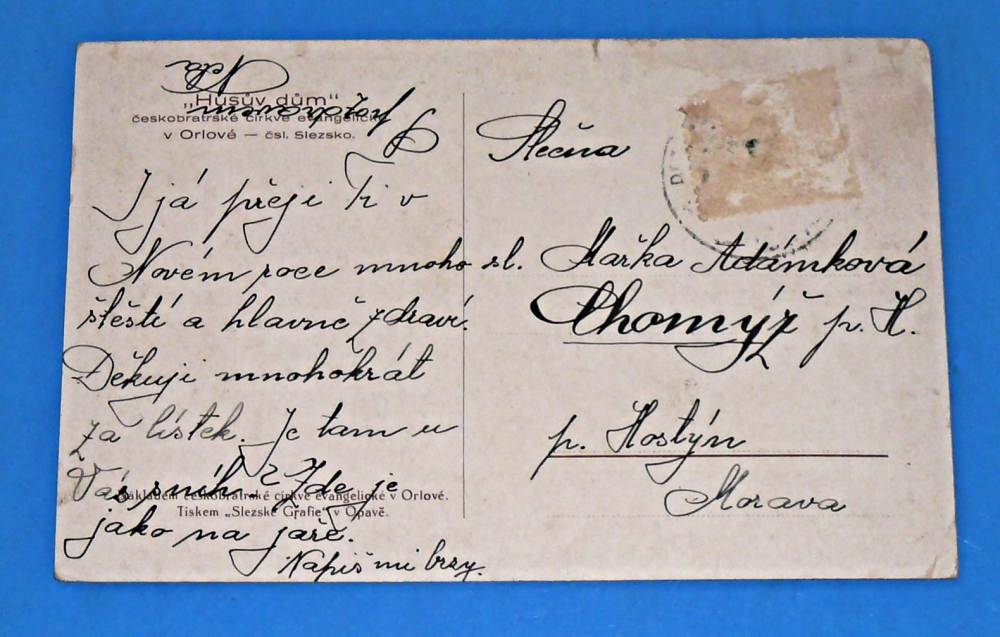 „Husův dům“
českobratrské církve evangelické
v Orlové — čsl. Slezsko.
I já přeji Ti v
Novém roce mnoho
štěstí a hlavně zdraví.
Děkuji mnohokrát
za lístek. Je tam u
Vás sníh? Zde je
jako na jaře.
Napiš mi brzy.
S pozdravem
Nákladem českobratrské církve evangelické v Orlové.
Tiskem „Slezské Grafie“ v Opavě.
Slečna
sl. Mařka Adámková
Chomýž p. H.
p. Hostýn
Morava